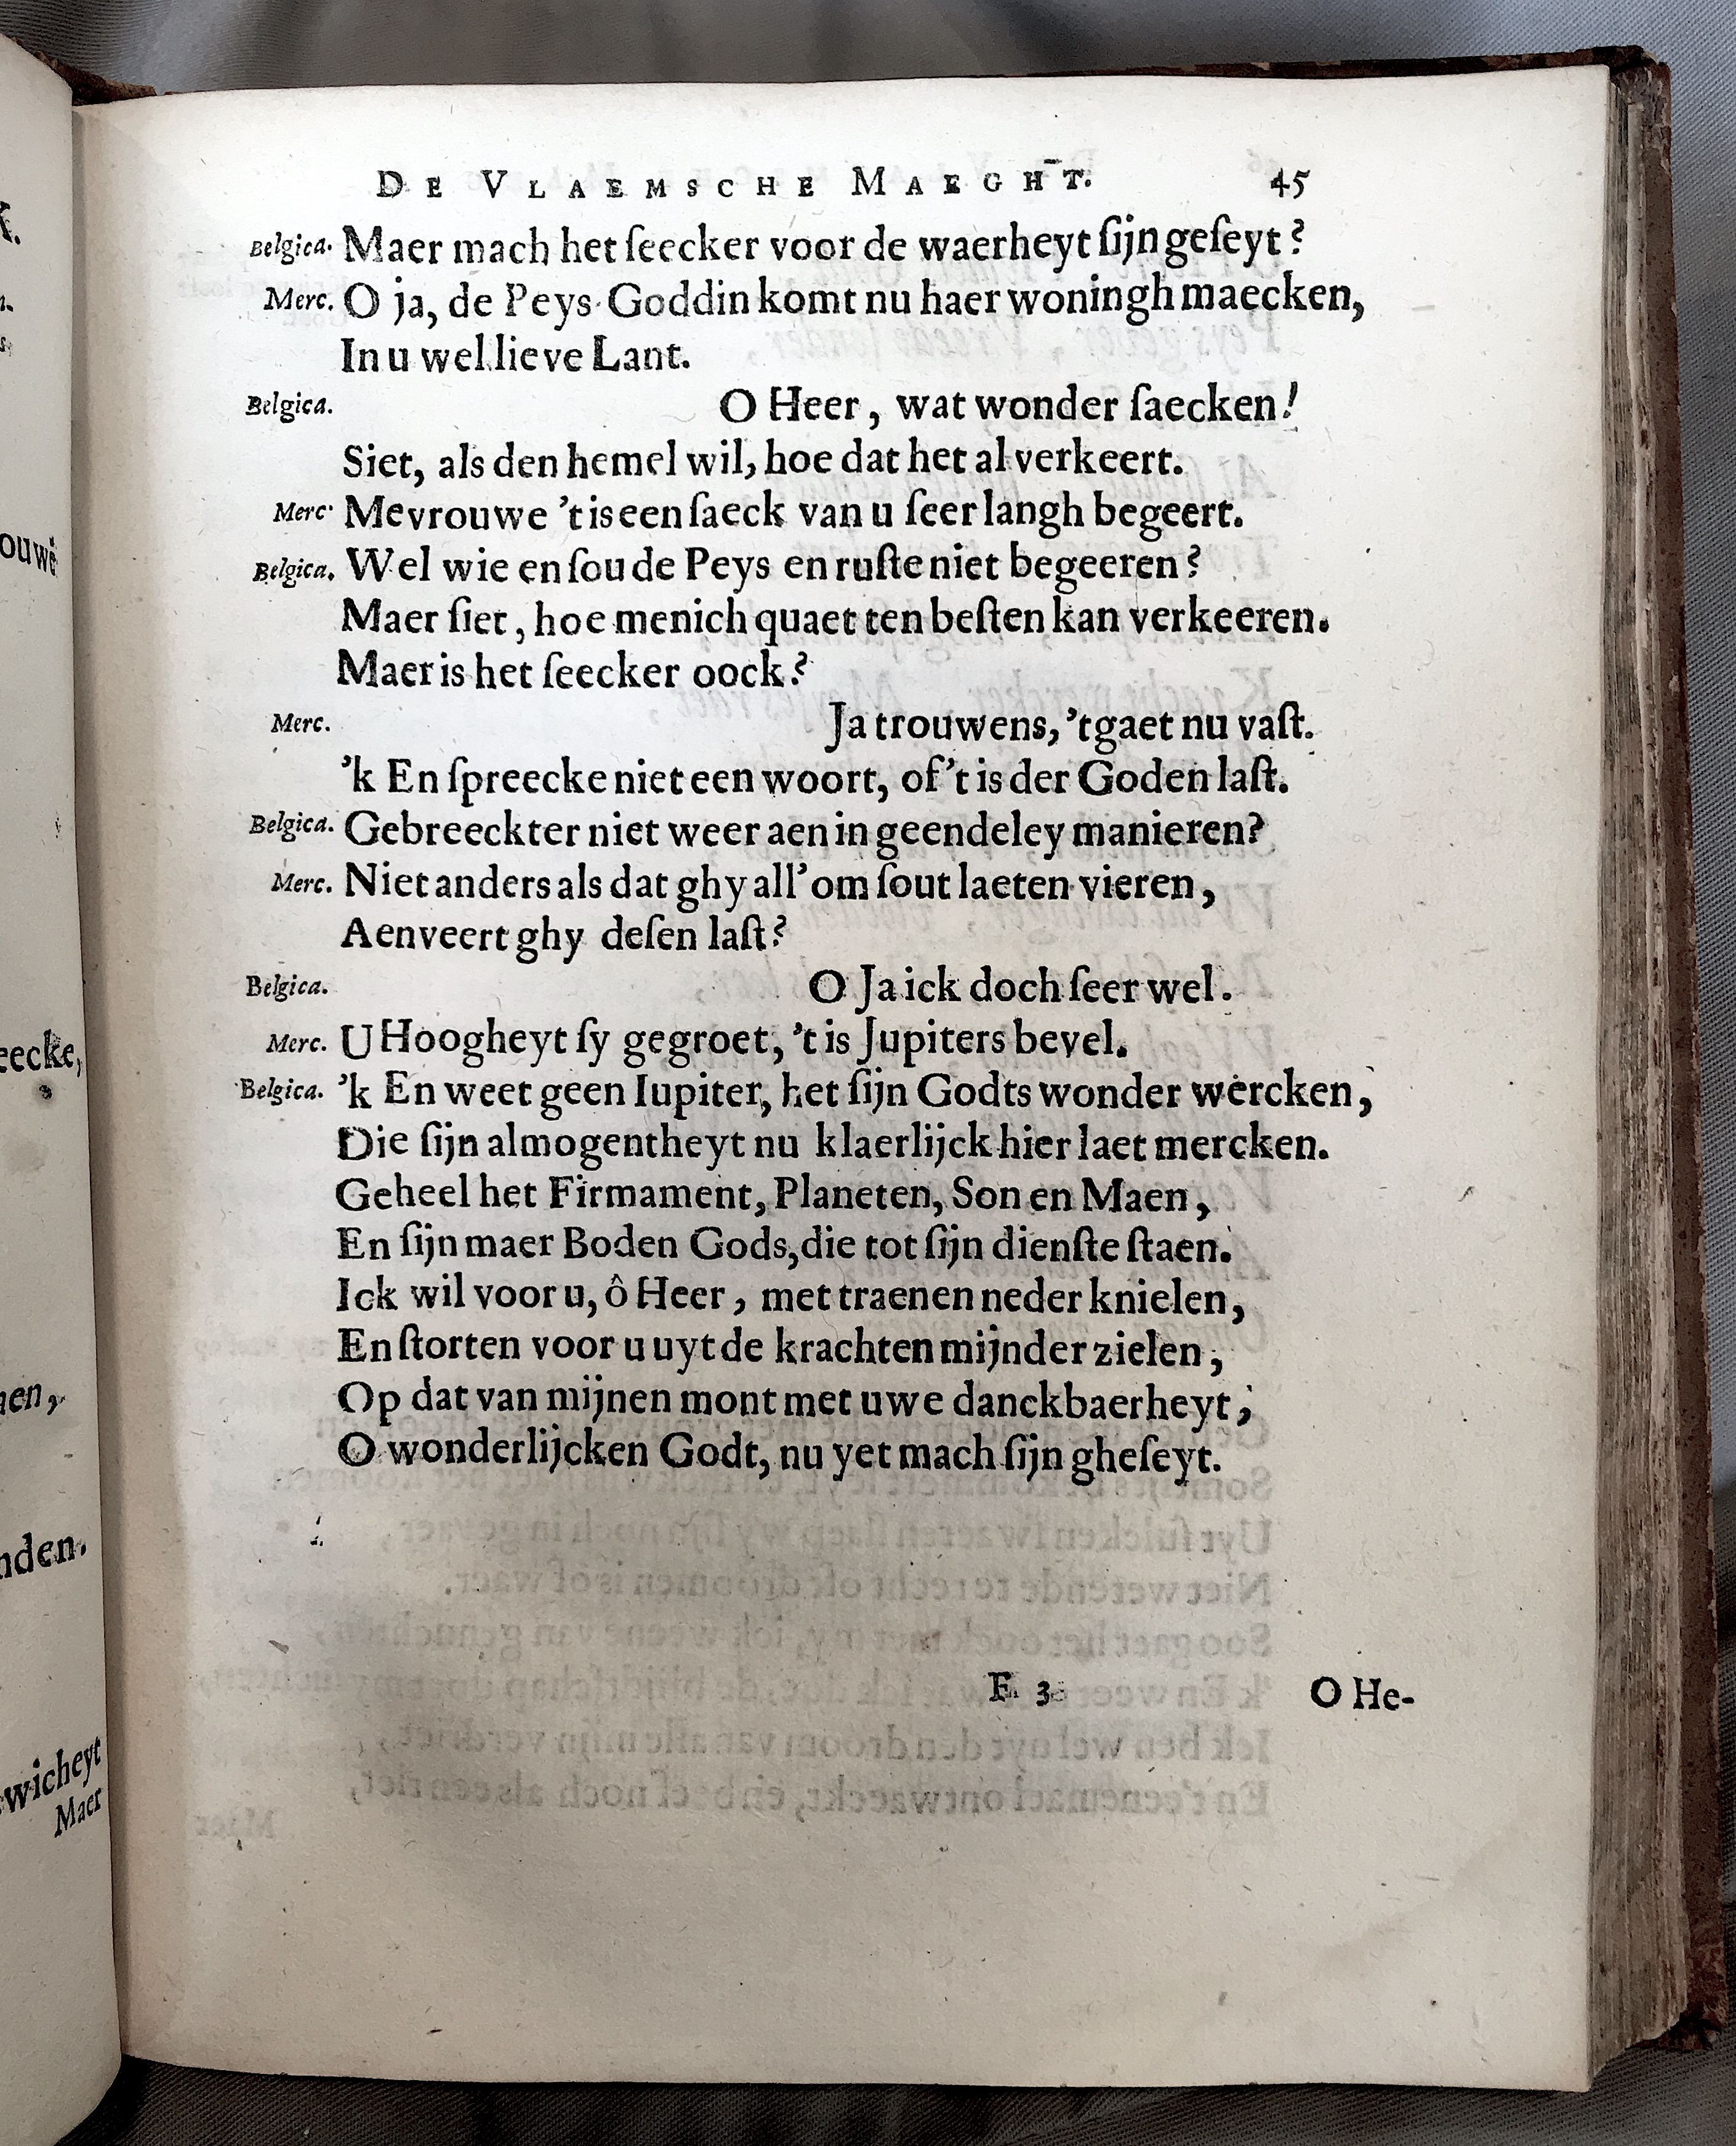 DE VLAEMSCHE MAEGHT. 45
Belgica. Maer mach het ſeecker voor de waerheyt ſijn geſeyt?
Merc. O ja, de Peys Goddin komt nu haer woningh maecken,
In u wel lieve Lant.
Belgica. O Heer, wat wonder ſaecken!
Siet, als den hemel wil, hoe dat het al verkeert.
Merc. Mevrouwe 't is een ſaeck van u ſeer langh begeert.
Belgica. Wel wie en ſou de Peys en ruſte niet begeeren?
Maer ſiet, hoe menich quaet ten beſten kan verkeeren.
Maer is het ſeecker oock?
Merc. Ja trouwens, 't gaet nu vaſt.
'k En ſpreecke niet een woort, of 't is der Goden laſt.
Belgica. Gebreeckter niet weer aen in geenderley manieren?
Merc. Niet anders als dat ghy all' om ſout laeten vieren,
Aenveert ghy deſen laſt?
Belgica. O Ja ick doch ſeer wel.
Merc. U Hoogheyt ſy gegroet, 't is Jupiters bevel.
Belgica. 'k En weet geen Iupiter, het ſijn Godts wonder wercken,
Die ſijn almogentheyt nu klaerlijck hier laet mercken.
Geheel het Firmament, Planeten, Son en Maen,
En ſijn maer Boden Gods, die tot ſijn dienſte ſtaen.
Ick wil voor u, ô Heer, met traenen neder knielen,
En ſtorten voor u uyt de krachten mijnder zielen,
Op dat van mijnen mont met uwe danckbaerheyt,
O wonderlijcken Godt, nu yet mach ſijn gheſeyt.
E 3 O He-
eecke,
nden.
wicheyt
Maer